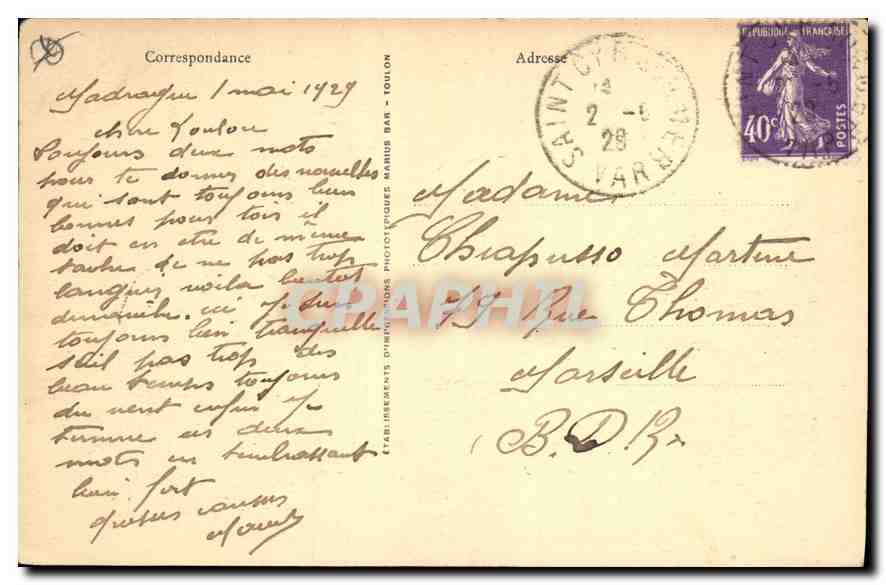 Correspondance
Madrague 1 mai 1929
chère Loulou
Toujours deux mots
pour te donner des nouvelles
qui sont toujours bien
bonnes pour toi il
doit en etre de même
tache de ne pas trop
languir voila bientot
dimanche. ici
toujours bien tranquille
soil pas trop des
beau temps toujours
du vent enfin je
termine ces deux
mots en t'embrassant
bien fort
grosses caresses
ÉTABLISSEMENTS D'IMPRESSIONS PHOTOTYPIQUES MARIUS BAR - TOULON
Adresse
SAINT CYR S MER
2 -5
29
VAR
RÉPUBLIQUE FRANÇAISE
40c
POSTES
Madame
Chiapusso Martine
99 Rue Thomas
Marseille
(B.D.R.
CPAPHIL